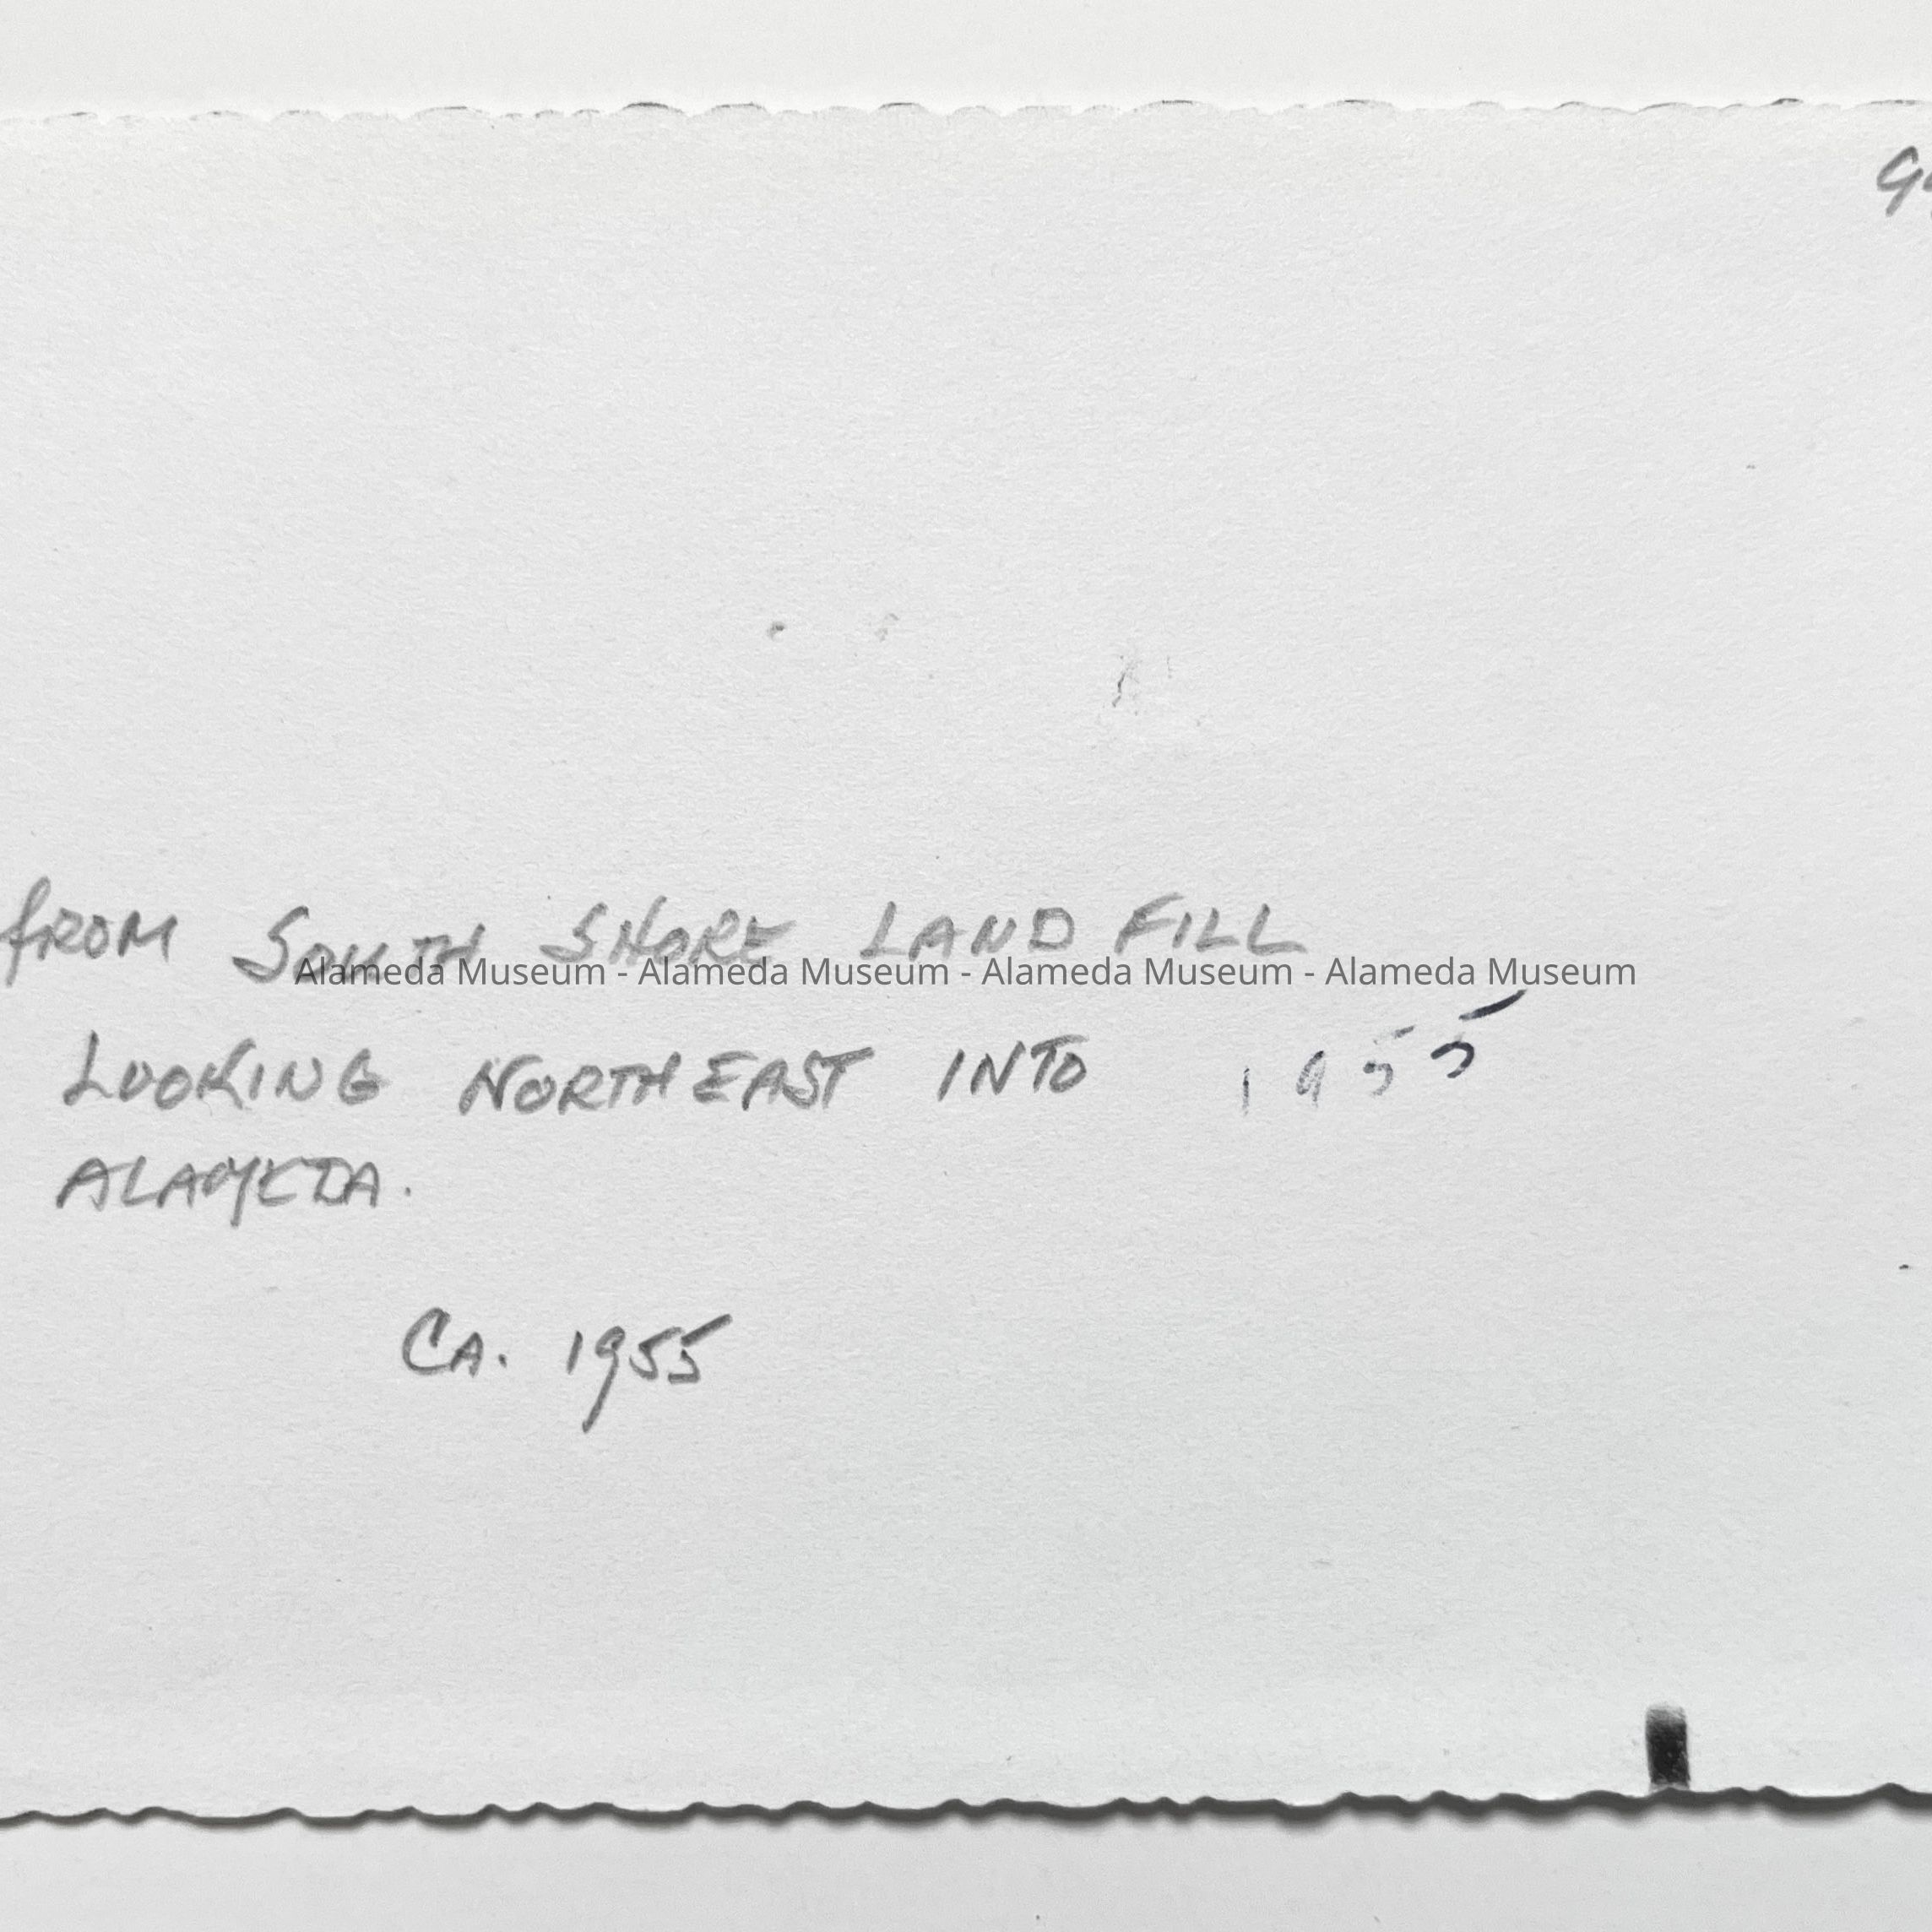 from South Shore Land Fill
Alameda Museum - Alameda Museum - Alameda Museum - Alameda Museum
Looking Northeast into 1955
Alameda.
Ca. 1955